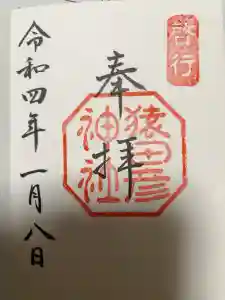 啓行
奉拝
猿田彦
神社
令和四年一月八日